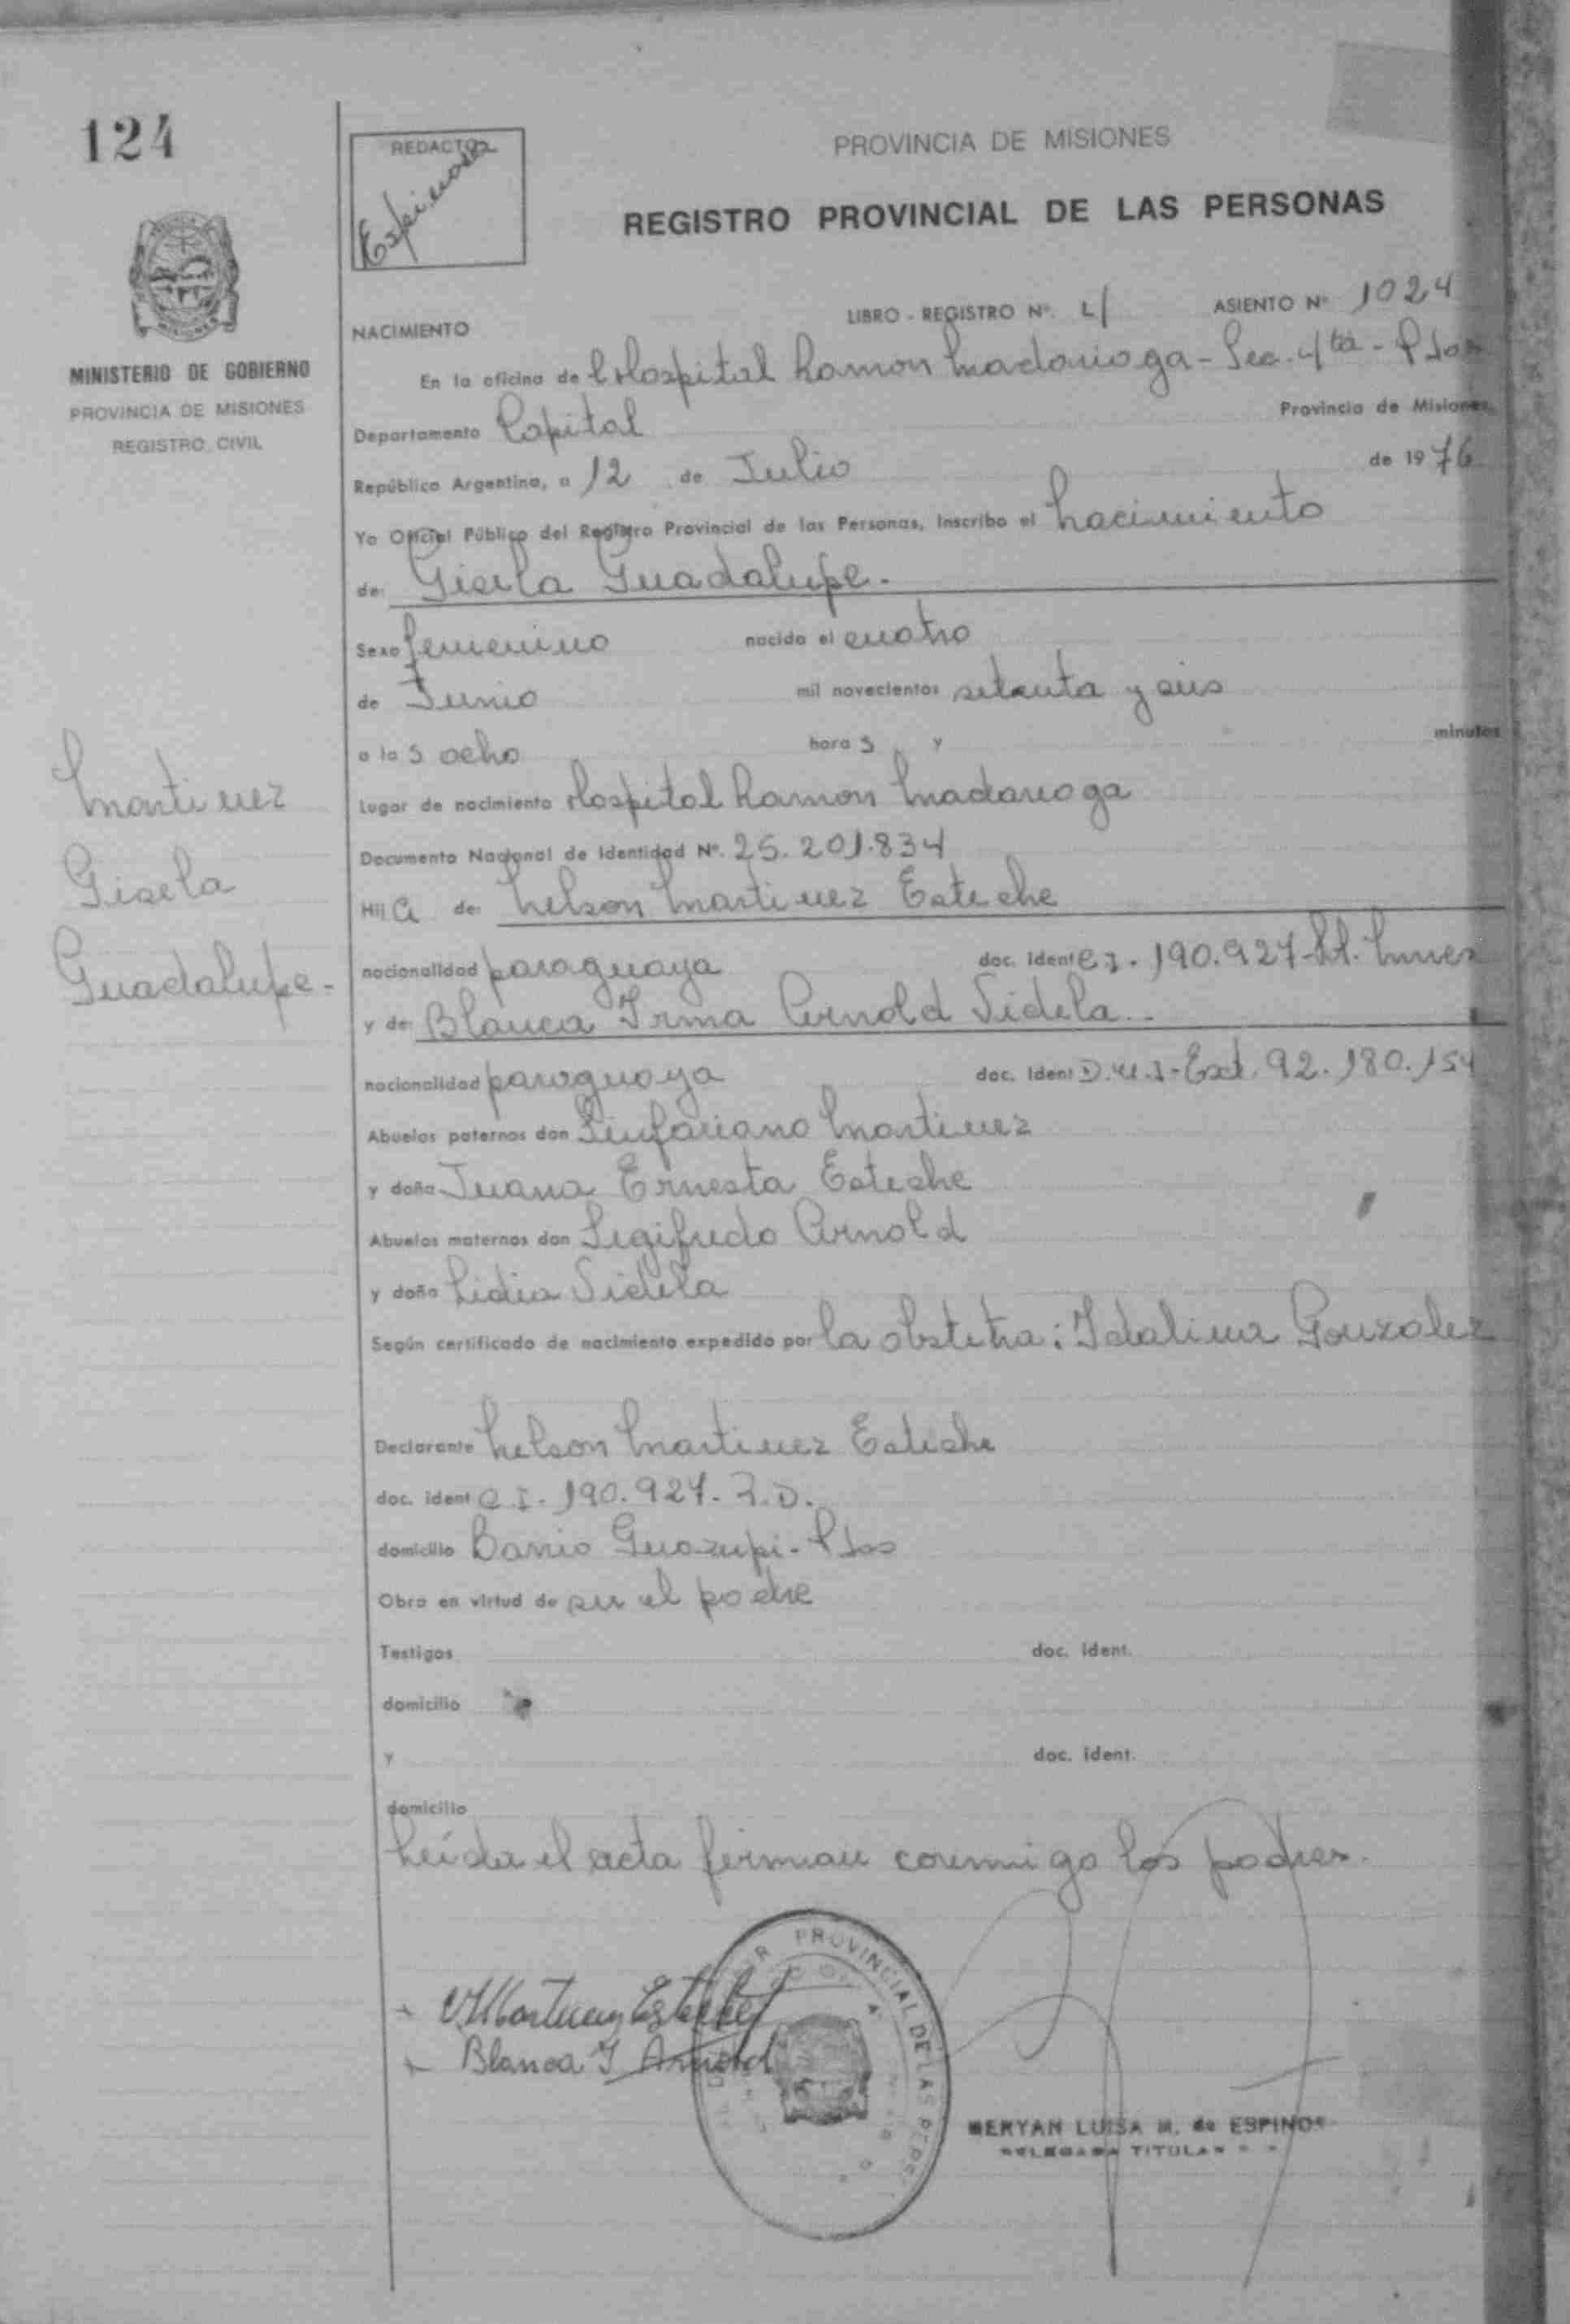 124
REDACTOR
Espinosa
PROVINCIA DE MISIONES
REGISTRO PROVINCIAL DE LAS PERSONAS
MINISTERIO DE GOBIERNO
PROVINCIA DE MISIONES
REGISTRO CIVIL
LIBRO - REGISTRO Nº. 4 ASIENTO Nº 1024
NACIMIENTO
En la oficina de Hospital Ramon Madariaga - Sec. 4ta - Pdas
Departamento Capital Provincia de Misiones,
República Argentina, a 12 de Julio de 1976
Yo Oficial Público del Registro Provincial de las Personas, Inscribo el Nacimiento
de: Gisela Guadalupe.-
Sexo femenino nacido el cuatro
de Junio mil novecientos setenta y seis
a las ocho horas y minutos
Lugar de nacimiento Hospital Ramon Madariaga
Documento Nacional de Identidad Nº. 25.201.834
Martinez
Gisela
Guadalupe.-
Hija de: Nelson Martinez Esteche
nacionalidad paraguaya doc. ident C.I. 190.927
y de: Blanca Irma Arnold Sidela.-
nacionalidad paraguaya doc. ident D.N.I. Ext. 92.180.154
Abuelos paternos don Martinez
y doña Juana Ernesta Esteche
Abuelos maternos don Sigifredo Arnold
y doña Lidia Sidela
Según certificado de nacimiento expedido por la obstetra: Idalina Gonzalez
Declarante Nelson Martinez Esteche
doc. ident C.I. 190.927.
domicilio Barrio Guazupi - Pdas
Obra en virtud de ser el padre
Testigos doc. ident.
domicilio
y doc. ident.
domicilio
Leída el acta firman conmigo los padres.
Martinez Esteche
Blanca I Arnold
PROVINCIAL DE LAS PERS
MERYAN LUISA M. de ESPINOS
DELEGADA TITULAR